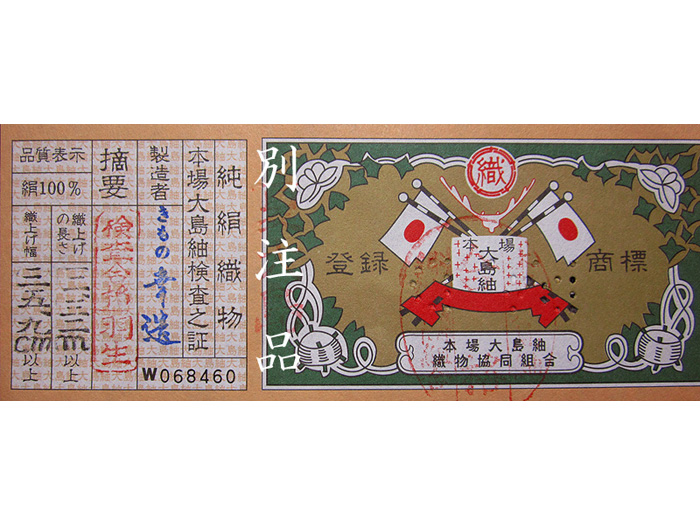 純絹織物
本場大島紬検査之証
製造者 きもの 幸造
摘要
検査合格
品質表示
絹100%
織上げの長さ
以上
織上げ幅
三五、九cm以上
W068460
別注品
織
本場
大島
紬
登録
商標
本場大島紬
織物協同組合